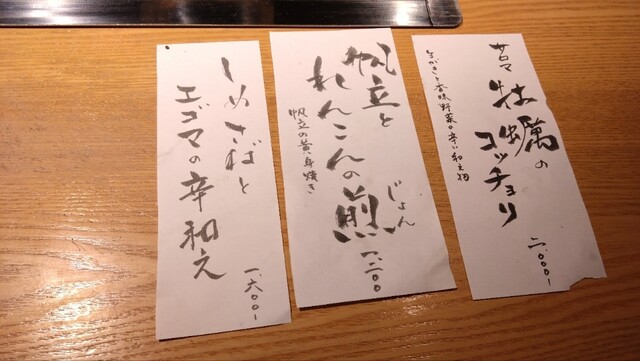 莒牡蠣の
コッチョリ
生がきと香味野菜の辛い和え物
二、〇〇〇
帆立と
れんこんの煎
じょん
帆立の黄身焼き
一、二〇〇
しめさばと
エゴマの辛和え
一、六〇〇